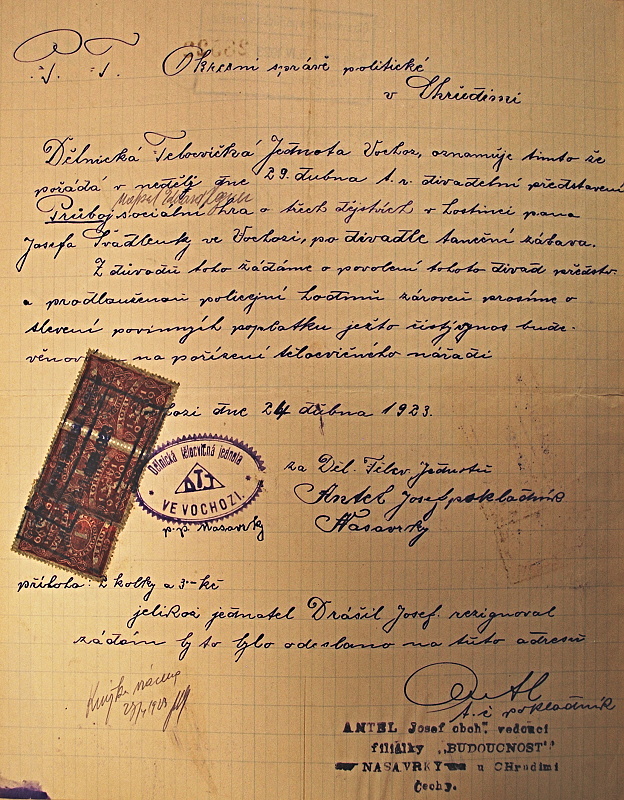 P. T.
Okresní správě politické
v Chrudimi
Dělnická Tělocvičká Jednota Vochoz, oznamuje tímto že
pořádá v neděli dne 29. dubna t. r. divadelní představení
napsal
Průboj sociální hra o třech dějstvích v hostinci pana
Josefa Švadlenky ve Vochozi, po divadle taneční zábava.
Z důvodů toho žádáme o povolení tohoto divad předstv.
a prodlouženou policejní hodinu zároveň prosíme o
slevení povinných poplatku ježto čistý výnos bude
věnován na pořízení tělocvičného nářadí
dne 24 dubna 1923.
Dělnická tělocvičná jednota
DTJ
VE VOCHOZI.
p. p. Nasavrky
za Děl. Tělov. Jednotu
Antel Josef pokladník
Nasavrky
příloha: 2 kolky a 3 kč
jelikož jednatel Drášil Josef. rezignoval
žádám by to bylo odesláno na tuto adresu
Antl
t. č pokladník
ANTEL Josef obch. vedoucí
filiálky „BUDOUCNOST"
NASAVRKY u CHrudimi
Čechy.